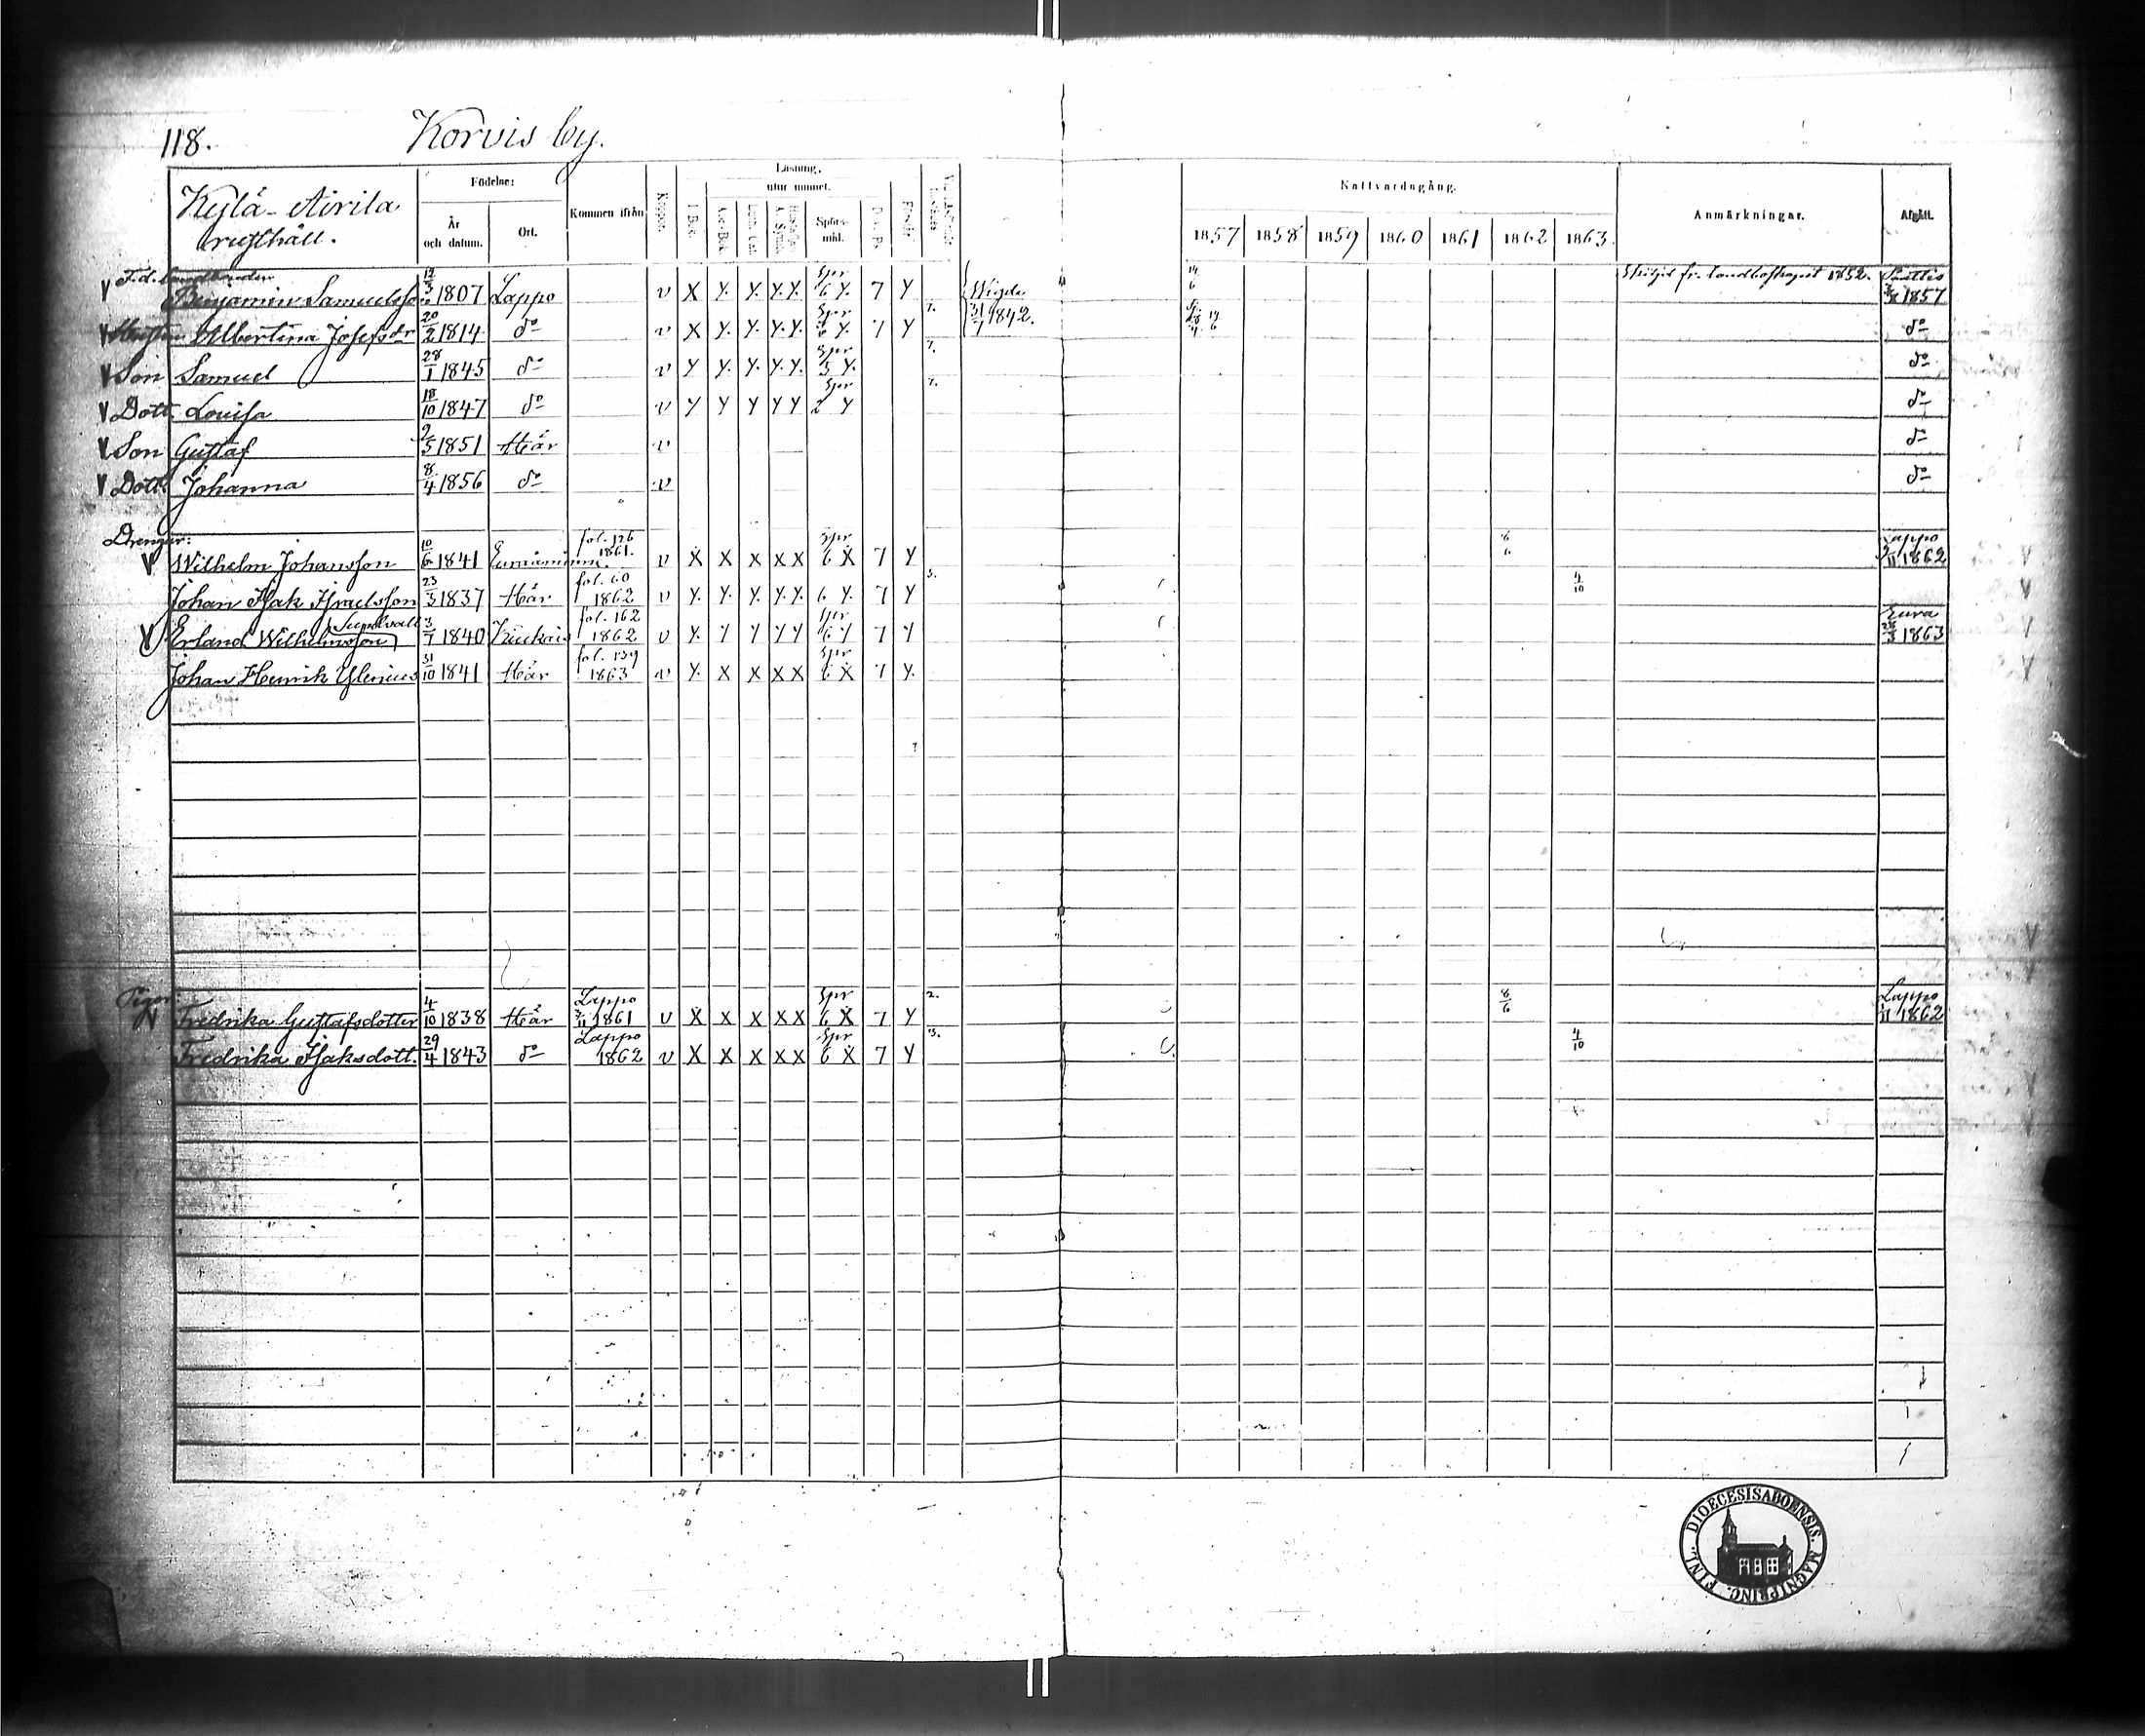 118. Korvis by.
Kylä-Airila rusthåll.
Födelse: År och datum. Ort. Kommen ifrån Koppor. Läsning, utur minnet. I Bok. Spörsmål. Nattvardsgång. 1857 1858 1859 1860 1861 1862 1863. Anmärkningar. Afgått.
F.d. landbonden
Benjamin Samuelsson 1807 Lappo v X Y. Y. Y.Y. Spr 6 Y. 7 Y Wigda 31/7 1842. 14/6 Skiljd fr. landboskapet 1852. 1857
Hustru Albertina Josefsdr 20/2 1814 do v X Y. Y. Y.Y. Spr Y. 7 Y 7. do
Son Samuel 28/1 1845 do v Y Y. Y. Y.Y. Spr 5 Y. 7. do
Dott. Lovisa 18/10 1847 do v Y Y Y Y Y Spr 2 Y 7. do
Son Gustaf 2/5 1851 Här v do
Dott. Johanna 8/4 1856 do v do
Drengar:
Wilhelm Johansson 10/6 1841 Euraåminne fol. 126 1861. v X X X X X Spr 6 X 7 Y 6/6 Lappo 1862
Johan Isak Israelsson 23/3 1837 Här fol. 60 1862 v Y. Y. Y. Y.Y. 6 Y. 7 Y 3. 4/10
Erland Wilhelmsson 3/7 1840 Kiukais fol. 162 1862 v Y. Y Y Y Y Spr 6 Y 7 Y Eura 1863
Johan Henrik Ylenius 31/10 1841 Här fol. 139 1863 v Y. X X X X Spr 6 X 7 Y.
Pigor:
Fredrika Gustafsdotter 4/10 1838 Här Lappo 1861 v X X X X X Spr 6 X 7 Y 2. 8/6 Lappo 1/11 1862
Fredrika Isaksdott. 29/4 1843 do Lappo 1862 v X X X X X Spr 6 X 7 Y 3. 4/10
DIOECESISABOENSIS. MAGNIPRINC. FINL.